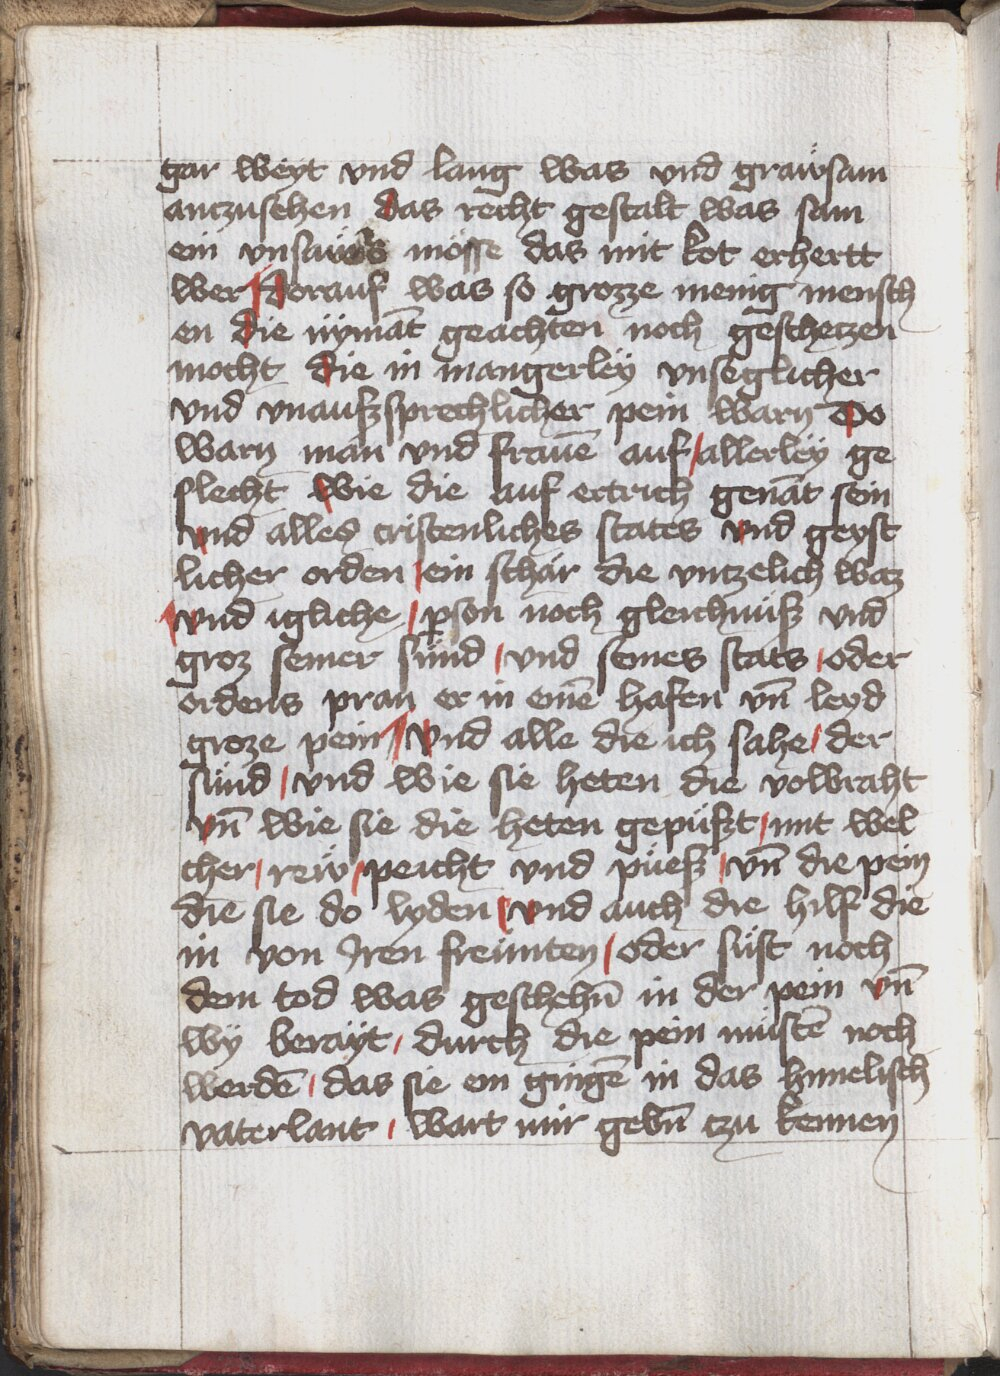 gar weyt vnd lang was vnd grawsam
anczusehen das recht gestalt was sam
ein vnsawbs mosse das mit kot erhertt
wer Dorauf was so grozze menig mensch
en die nymāt geachten noch gescheczen
mocht die in mangerley vnseglicher
vnd vnaufzsprechlicher pein warn Do
warn man vnd frauē auf allerley ge
slecht wie die auf ertrich genāt sein
vnd alles cristenliches states vnd geyst
licher orden ein schar die vntzelich waz
vnd igliche pson noch gleichnüsz vnd
groz seiner sünd vnd seines stats oder
ordens pran er in einē hafen vn̄ leyd
groze pein vnd alle die ich sahe der
sünd vnd wie sie heten die volbraht
vn̄ wie sie die heten gepüszt mit wel
cher rew peicht vnd püesz vn̄ die pein
die sie do lyden vnd auch die hilf die
in von Iren freunten oder süst noch
dem tod was geschehn̄ in der pein vn̄
wy berayt durch die pein müstē noch
werdē das sie ein gingē in das himelisch
vaterlant wart mir gebn̄ czu kennen